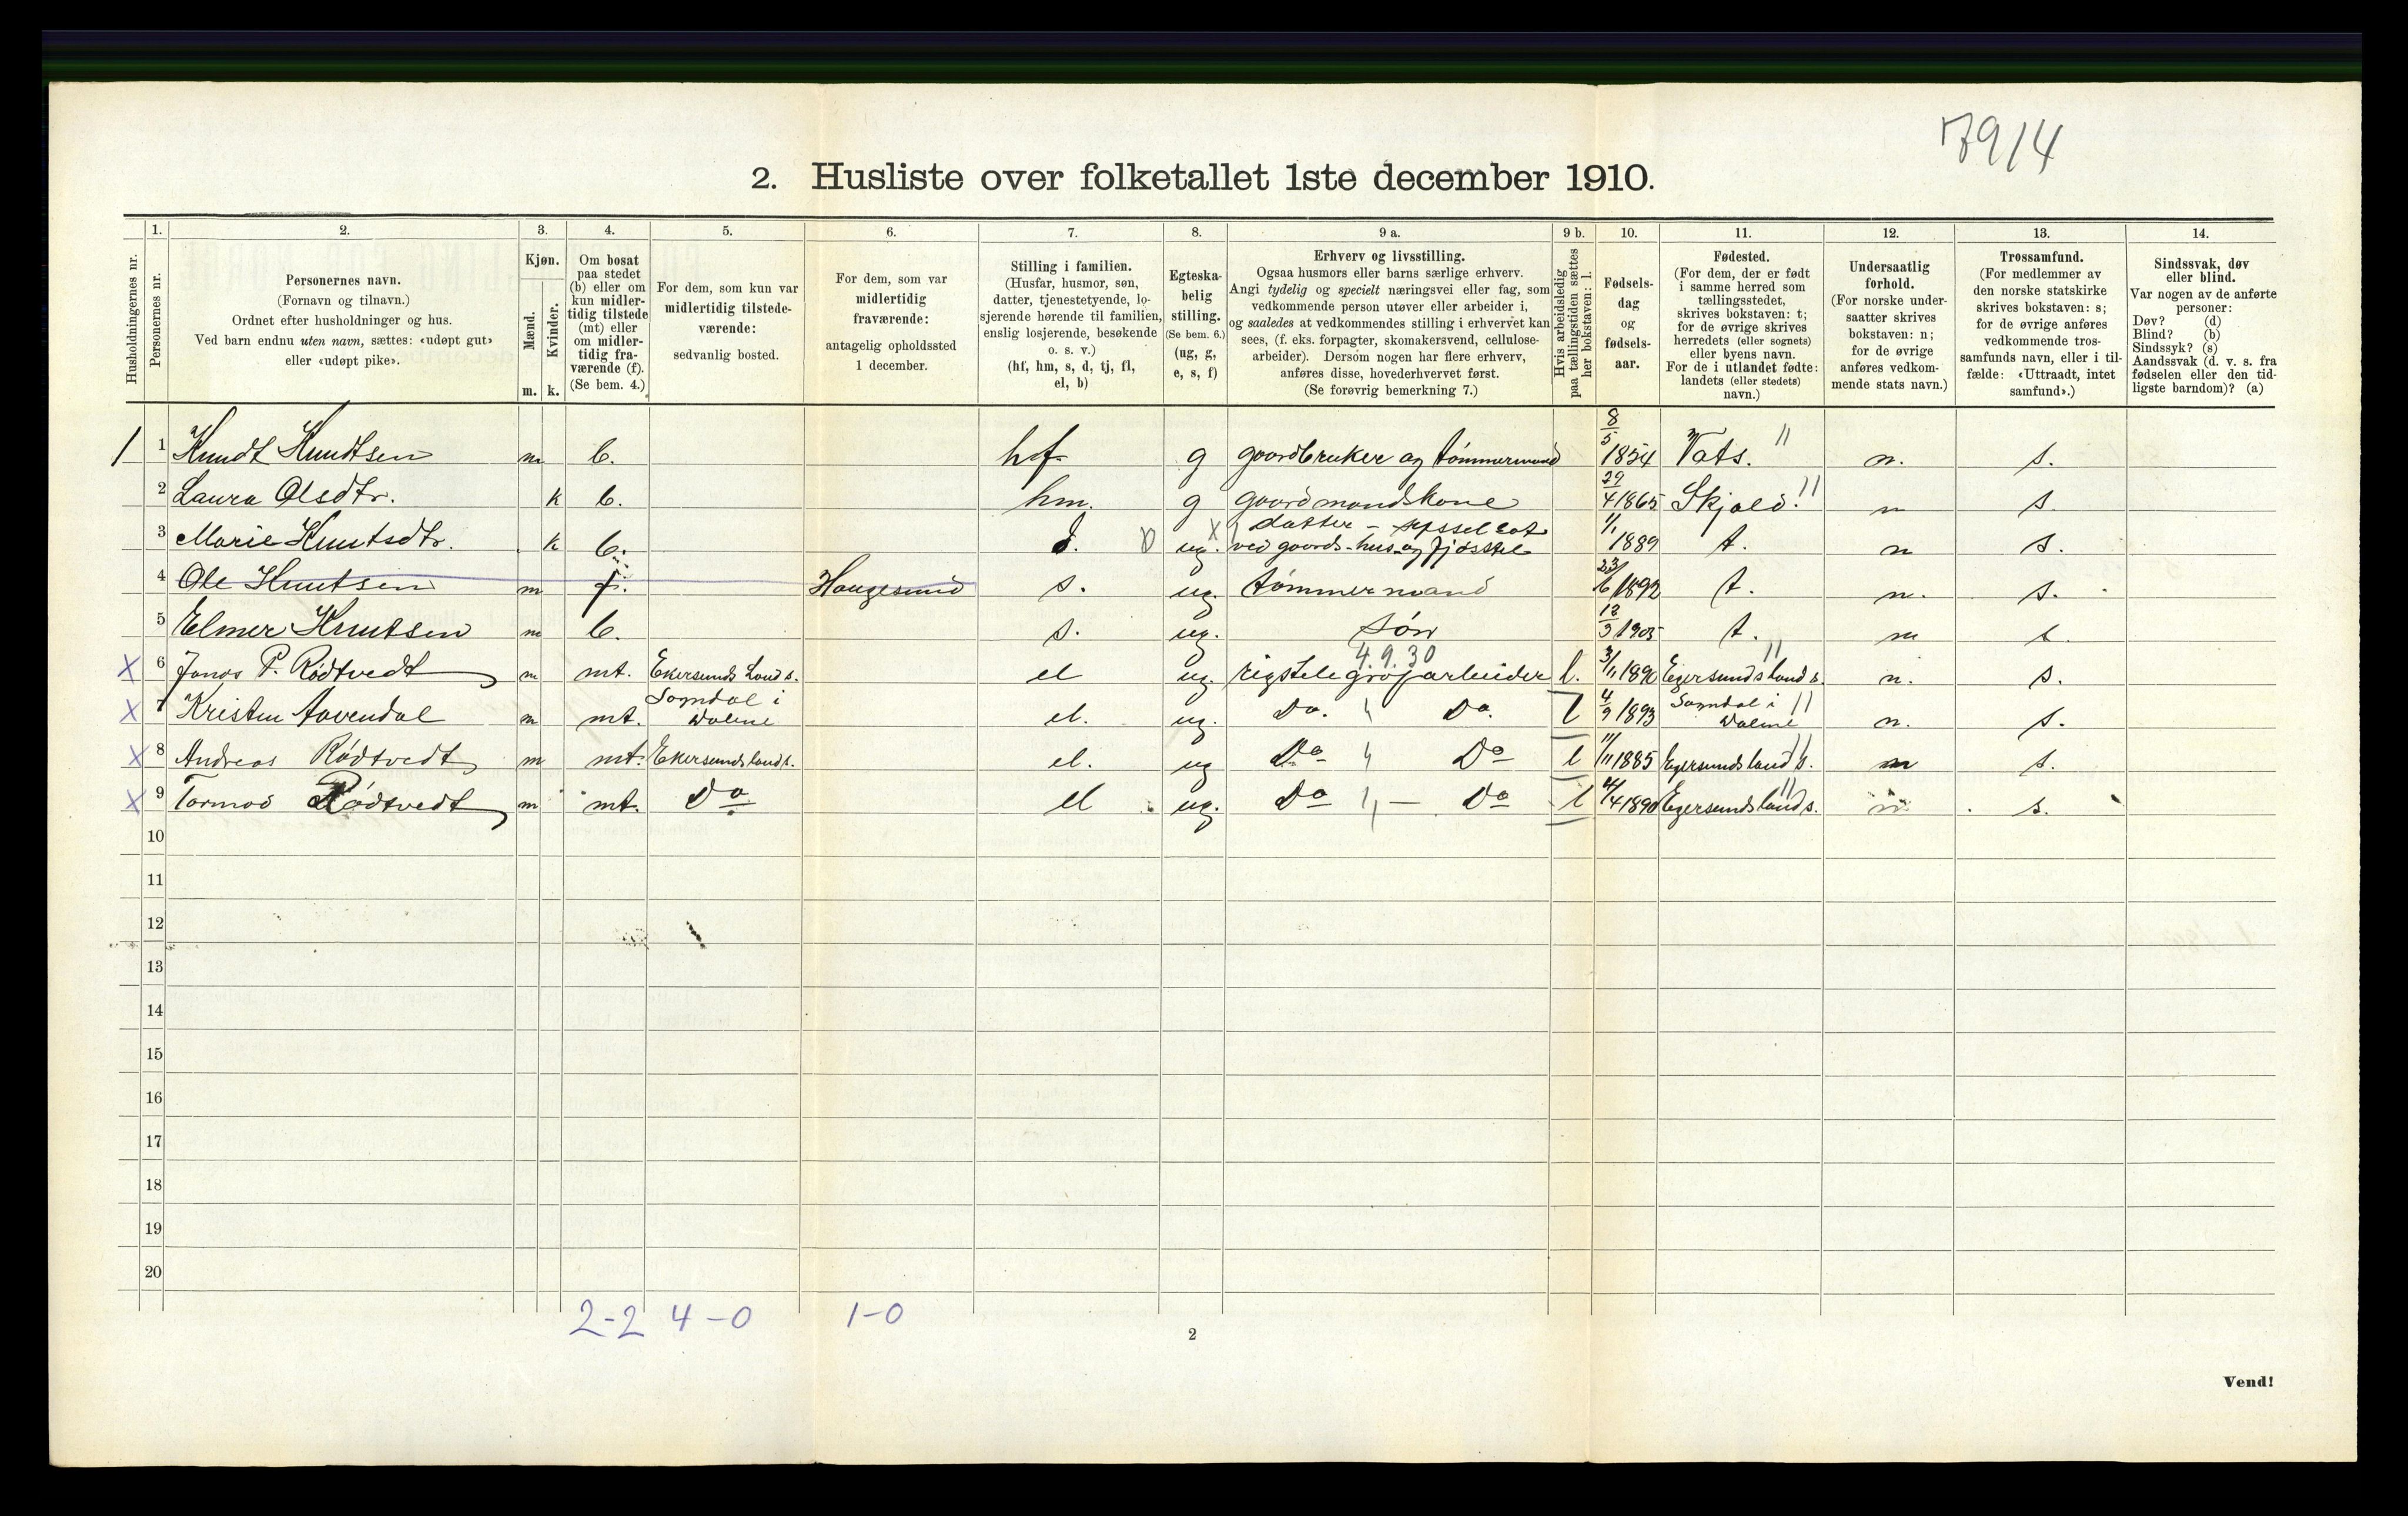 7914
2. Husliste over folketallet 1ste december 1910.
Husholdningernes nr.
1.
Personernes nr.
2.
Personernes navn.
(Fornavn og tilnavn.)
Ordnet efter husholdninger og hus.
Ved barn endnu uten navn, sættes: «udøpt gut»
eller «udøpt pike».
3.
Kjøn.
Mænd.
Kvinder.
m. k.
4.
Om bosat
paa stedet
(b) eller om
kun midler-
tidig tilstede
(mt) eller
om midler-
tidig fra-
værende (f).
(Se bem. 4.)
5.
For dem, som kun var
midlertidig tilstede-
værende:
sedvanlig bosted.
6.
For dem, som var
midlertidig
fraværende:
antagelig opholdssted
1 december.
7.
Stilling i familien.
(Husfar, husmor, søn,
datter, tjenestetyende, lo-
sjerende hørende til familien,
enslig losjerende, besøkende
o. s. v.)
(hf, hm, s, d, tj, fl,
el, b)
8.
Egteska-
belig
stilling.
(Se bem. 6.)
(ug, g,
e, s, f)
9 a.
Erhverv og livsstilling.
Ogsaa husmors eller barns særlige erhverv.
Angi tydelig og specielt næringsvei eller fag, som
vedkommende person utøver eller arbeider i,
og saaledes at vedkommendes stilling i erhvervet kan
sees, (f. eks. forpagter, skomakersvend, cellulose-
arbeider). Dersom nogen har flere erhverv,
anføres disse, hovederhvervet først.
(Se forøvrig bemerkning 7.)
9 b.
Hvis arbeidsledig
paa tællingstiden sættes
her bokstaven: l.
10.
Fødsels-
dag
og
fødsels-
aar.
11.
Fødested.
(For dem, der er født
i samme herred som
tællingsstedet,
skrives bokstaven: t;
for de øvrige skrives
herredets (eller sognets)
eller byens navn.
For de i utlandet fødte:
landets (eller stedets)
navn.)
12.
Undersaatlig
forhold.
(For norske under-
saatter skrives
bokstaven: n;
for de øvrige
anføres vedkom-
mende stats navn.)
13.
Trossamfund.
(For medlemmer av
den norske statskirke
skrives bokstaven: s;
for de øvrige anføres
vedkommende tros-
samfunds navn, eller i til-
fælde: «Uttraadt, intet
samfund».)
14.
Sindssvak, døv
eller blind.
Var nogen av de anførte
personer:
Døv? (d)
Blind? (b)
Sindssyk? (s)
Aandssvak (d. v. s. fra
fødselen eller den tid-
ligste barndom)? (a)
1 1 Knudt Knudtsen m b. hf. g gaardbruker og tømmermand 8/5 1854 Vats. n. s.
2 Laura Olsdtr. k b. hm. g gaardmandskone 29/4 1865 Skjold. n s.
3 Marie Knutsdtr. k b. d. ug. datter - sysselsat
ved gaards-hus-og fjøsstel 1/1 1889 t. n s.
4 Ole Knutsen m f. Haugesund s. ug. tømmermand 23/6 1892 t. n. s.
5 Elmer Knutsen m b. s. ug. søn 1905 t. n s
4.9.30
x 6 Jonas P. Rødtvedt m mt. Ekersunds Lands. el ug. rigstelegrafarbeider l. 3/11 1890 Egersundslands. n. s.
x 7 Kristen Aavendal m mt. Sogndal i
Dalene el. ug. Do. " Do. l 4/9 1893 Sogndal i
Dalene n. s.
x 8 Andreas Rødtvedt m mt. Ekersundslands. el. ug Do " Do l 11/11 1885 Egersundslands. n s.
x 9 Tormod Rødtvedt m mt. Do el ug. Do " Do l 1890 Egersundslands. n s.
10
11
12
13
14
15
16
17
18
19
20
2-2 4-0 1-0
2
Vend!